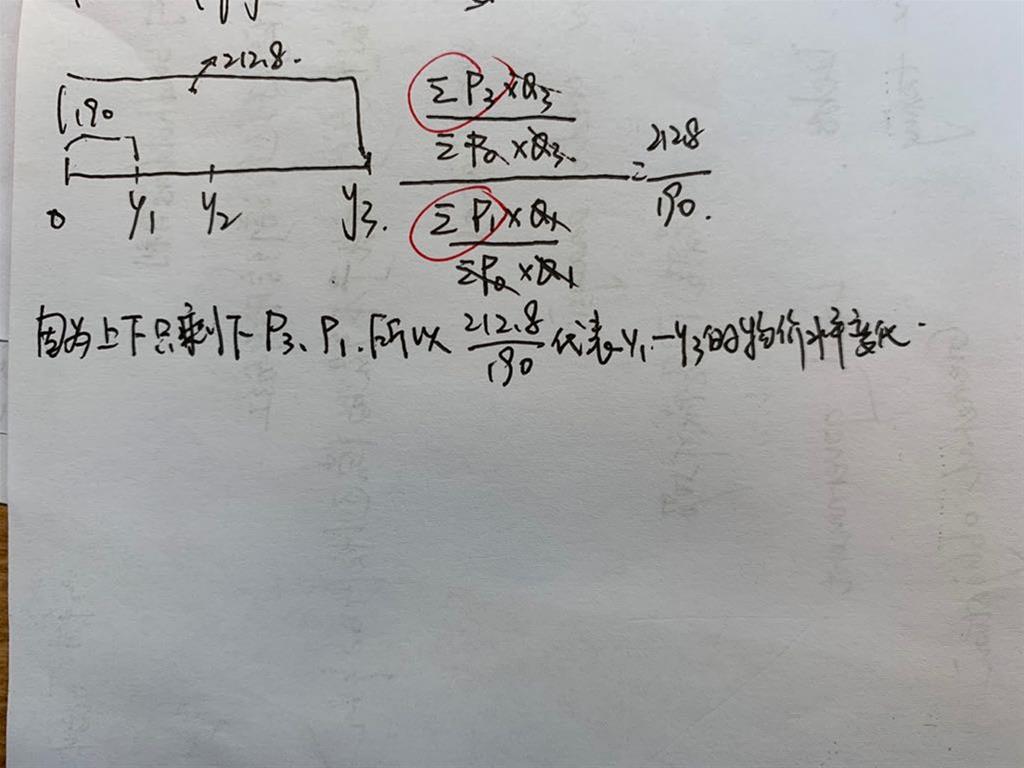 212.8.
190
0 y1 y2 y3.
ΣP3×Q3
ΣP0×Q3.
ΣP1×Q1
ΣP0×Q1
= 212.8
190.
因为上下只剩下P3、P1.所以 212.8/190 代表y1-y3的物价水平变化.